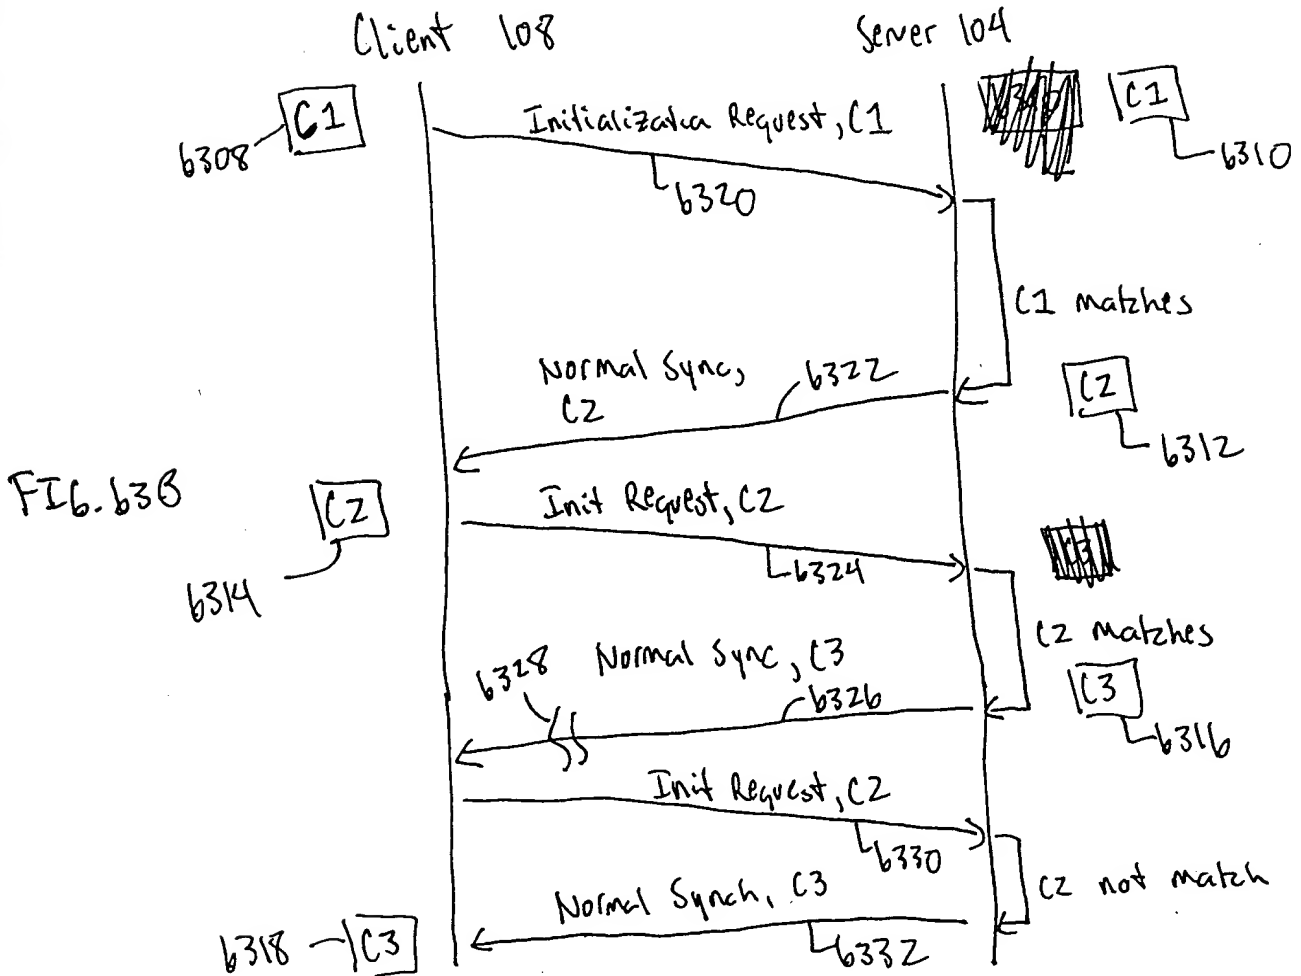 Client 108
Server 104
C1
C1
6308
Initialization Request, C1
6310
6320
C1 matches
Normal Sync,
C2
6322
C2
6312
FIG. 63B
C2
Init Request, C2
6314
6324
C2 matches
6328
Normal Sync, C3
6326
C3
6316
Init Request, C2
6330
C2 not match
Normal Synch, C3
6318
C3
6332